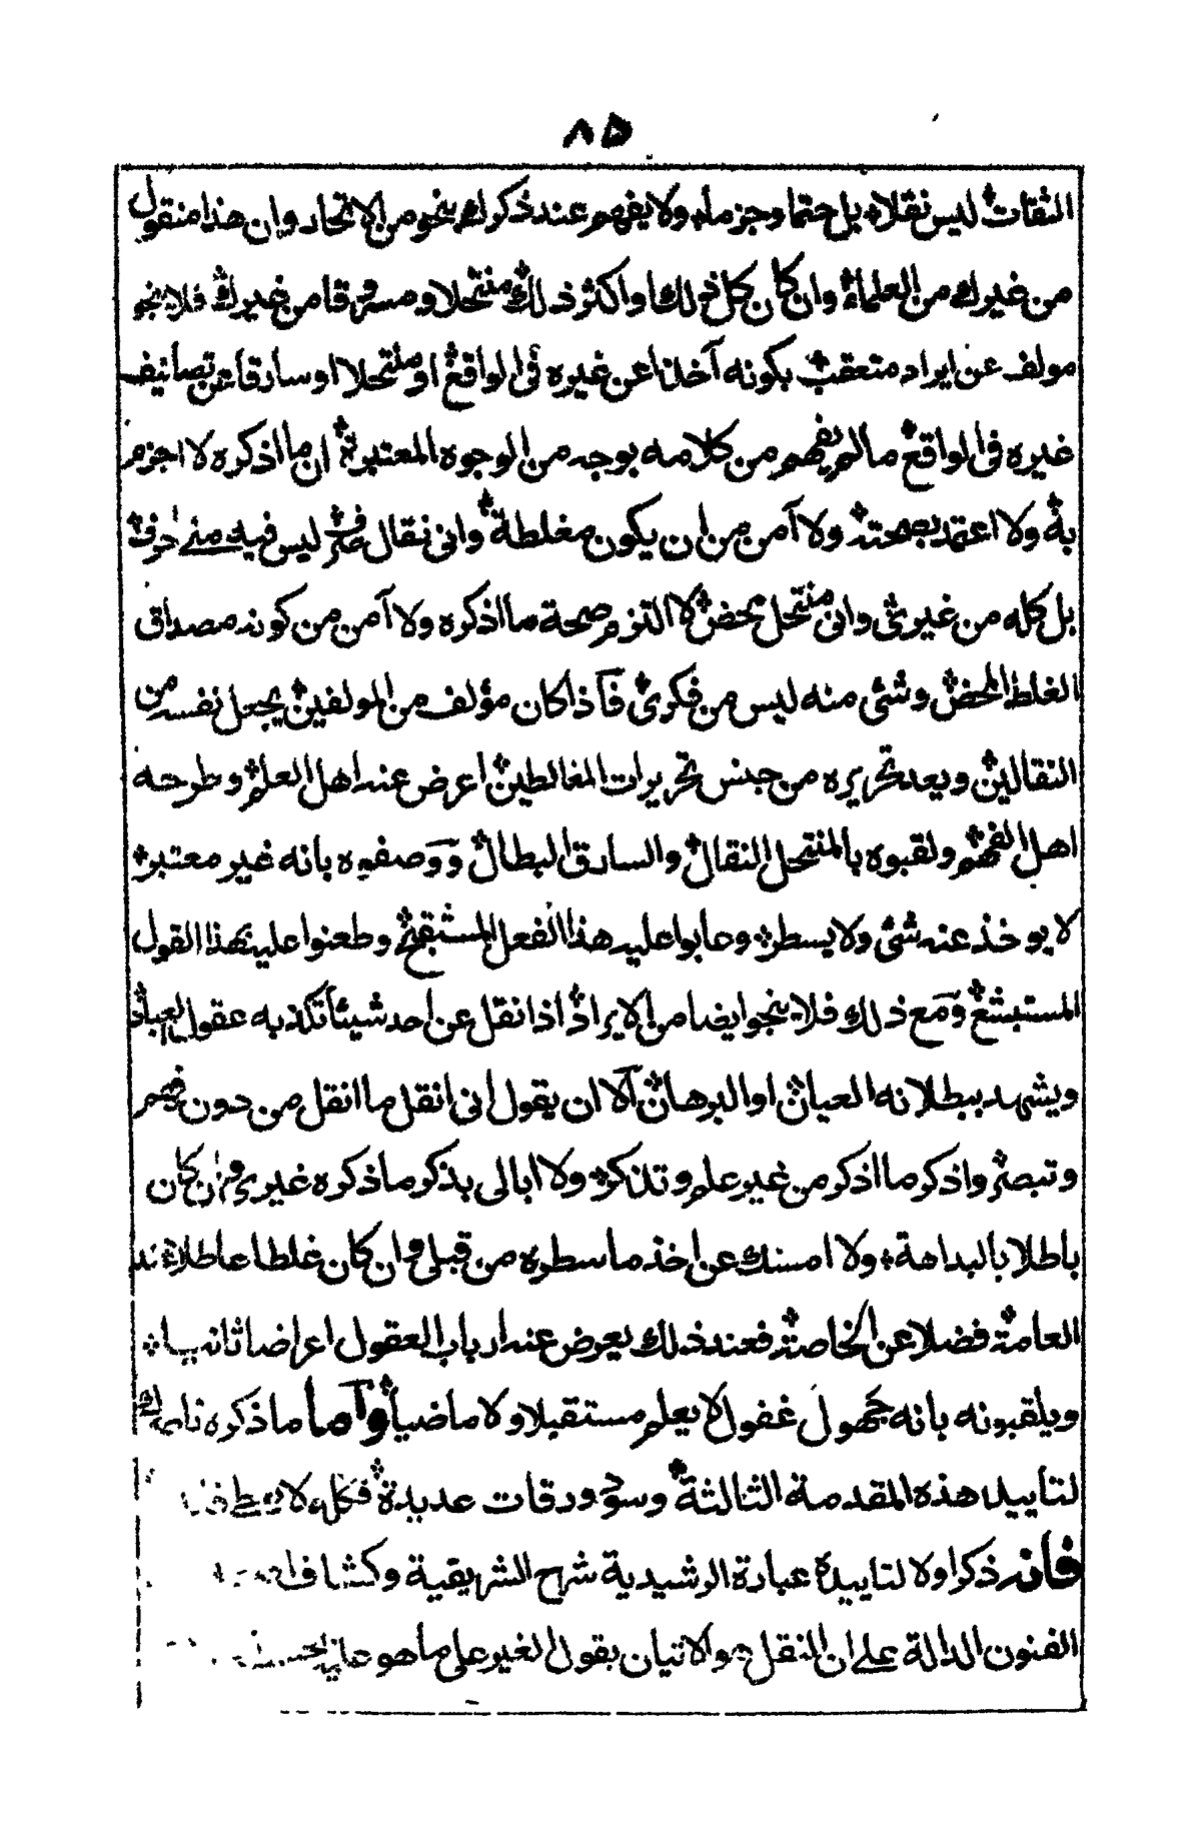 ٨٥
الثقات ليس نقلا بل حتما وجزما ولا يفهم عند ذكرك بنحو من الاتحاد وان هذا منقول
من غيرك من العلماء وان كان كل ذلك او اكثر ذلك منتحلا ومسترقا من غيرك فلا ينجو
مولف عن ايراد متعقب بكونه آخذا عن غيره فى الواقع او منتحلا او سارقا عن تصانيف
غيره فى الواقع ما لم يفهم من كلامه بوجه من الوجوه المعتبرة ان ما اذكره لا اجزم
به ولا اعتمد بصحته ولا آمن من ان يكون مغلطة وانى نقال ليس فيه منى حرف
بل كله من غيرى وانى منتحل محض لا التزم صحة ما اذكره ولا آمن من كونه مصداق
الغلط المحض وشئ منه ليس من فكرى فآذا كان مؤلف من المولفين يجعل نفسه من
النقالين ويعد تحريره من جنس تحريرات المغالطين اعرض عنه اهل العلم وطرحه
اهل الفهم ولقبوه بالمنتحل النقال والسارق البطال ووصفوه بانه غير معتبر
لا يوخذ عنه شئ ولا يسطر وعابوا عليه هذا الفعل المستقبح وطعنوا عليه بهذا القول
المستبشع ومع ذلك فلا ينجو ايضا من الايراد اذا نقل عن احد شيئا تكذبه عقول العباد
ويشهد ببطلانه العيان او البرهان آلا ان يقول انى انقل ما انقل من دون فهم
وتبصر واذكر ما اذكر من غير علم وتذكر ولا ابالى بذكر ما ذكره غيرى وان كان
باطلا بالبداهة ولا امسك عن اخذ ما سطره من قبلى وان كان غلطا عاطلا عند
العامة فضلا عن الخاصة فعند ذلك يعرض عنه ارباب العقول اعراضا ثانيا
ويلقبونه بانه جهول غفول لا يعلم مستقبلا ولا ماضيا وآما ما ذكره ناصرك
لتاييد هذه المقدمة الثالثة وسود ورقات عديدة فكله لا
فانه ذكر اولا لتاييده عبارة الرشيدية شرح الشريفية وكشاف
الفنون الدالة على ان النقل هو الاتيان بقول الغير على ما هو عليه